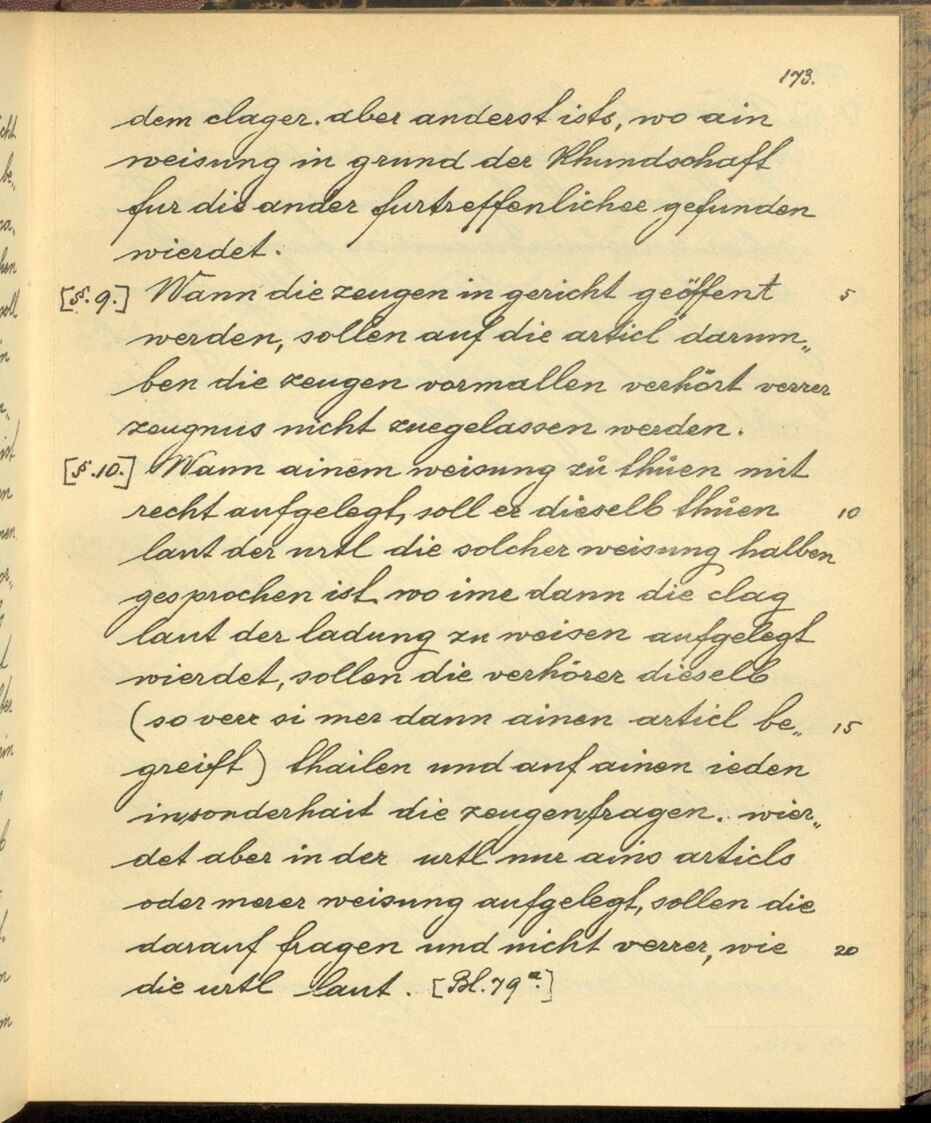 173.
dem clager. aber anderst ists, wo ain
weisung in grund der khundschaft
fur die ander furtreffenlicher gefunden
wierdet.
[§. 9.] Wann die zeugen in gericht geöffent 5
werden, sollen auf die articl darum„
ben die zeugen vormallen verhört verrer
zeugnus nicht zuegelassen werden.
[§. 10.] Wann ainem weisung zů thůen mit
recht aufgelegt, soll er dieselb thůen 10
laut der urtl die solcher weisung halben
gesprochen ist wo ime dann die clag
laut der ladung zu weisen aufgelegt
wierdet, sollen die verhörer dieselb
(so verr si mer dann ainen articl be„ 15
greift) thailen und auf ainen ieden
insonderhait die zeugen fragen. wier„
det aber in der urtl nur ains articls
oder merer weisung aufgelegt, sollen die
darauf fragen und nicht verrer, wie 20
die urtl laut. [Bl. 79a.]